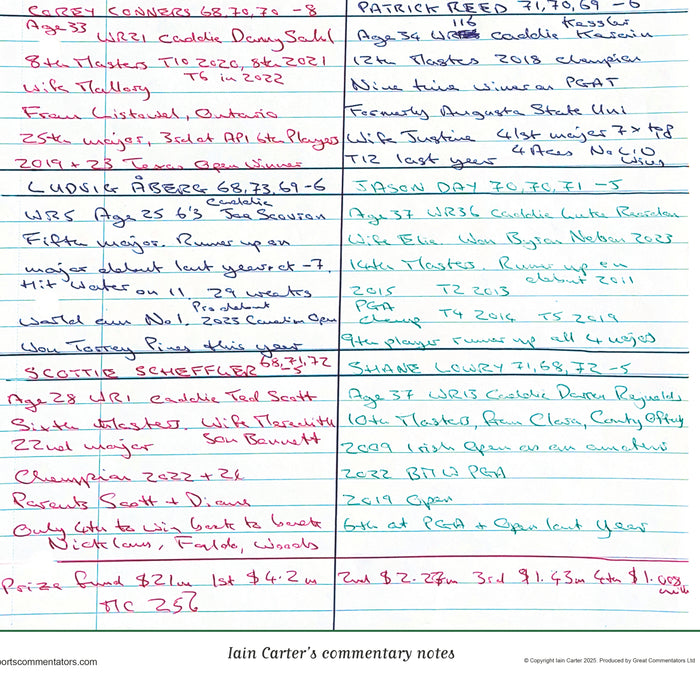 COREY CONNERS 68,70,70 -8
Age 33 WR21 Caddie Danny Sahl
8th Masters T10 2020, 8th 2021
T6 in 2022
Wife Mallory
From Listowel, Ontario
25th major, 3rd at API 6th Players
2019 + 23 Texas Open Winner
PATRICK REED 71,70,69 -6
Age 34 WR 116 Caddie Kessler Karain
12th Masters 2018 champion
Nine time winner on PGAT
Formerly Augusta State Uni
Wife Justine 41st major 7 x top
T12 last year 4 Aces No LIV
wins
LUDVIG ÅBERG 68,73,69 -6
WR5 Age 25 6'3 Caddie Joe Scovron
Fifth major. Runner up on
major debut last year at -7.
Hit Water on 11. 29 weeks
World am No 1. Pro debut 2023 Canadian Open
Won Torrey Pines this year
JASON DAY 70,70,71 -5
Age 37 WR36 Caddie Luke Reardon
Wife Ellie. Won Byron Nelson 2023
14th Masters. Runner up on
debut 2011
2015 T2 2013
PGA
champ T4 2016 T5 2019
9th player runner up all 4 majors
SCOTTIE SCHEFFLER 68,71,72
-5
Age 28 WR1 Caddie Ted Scott
Sixth Masters. Wife Meredith
22nd major Son Bennett
Champion 2022 + 24
Parents Scott + Diane
Only 4th to win back to back
Nicklaus, Faldo, Woods
SHANE LOWRY 71,68,72 -5
Age 37 WR13 Caddie Darren Reynolds
10th Masters, from Clara, County Offaly
2009 Irish Open as an amateur
2022 BMW PGA
2019 Open
6th at PGA + Open last year
Prize fund $21m 1st $4.2m 2nd $2.27m 3rd $1.43m 4th $1.008
milk
MC 256
Iain Carter's commentary notes
ortscommentators.com
© Copyright Iain Carter 2025. Produced by Great Commentators Ltd